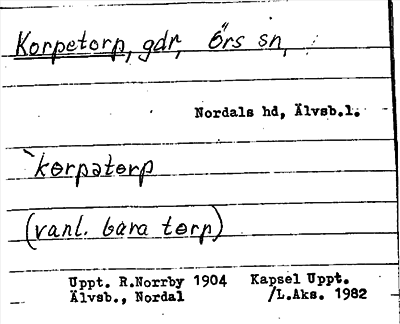 Korpetorp, gdr, Örs sn,
Nordals hd, Älvsb.l.
`kɵrpətɵrp
(vanl. bara tɵrp)
Uppt. R.Norrby 1904 Kapsel Uppt.
Älvsb., Nordal /L.Aks. 1982